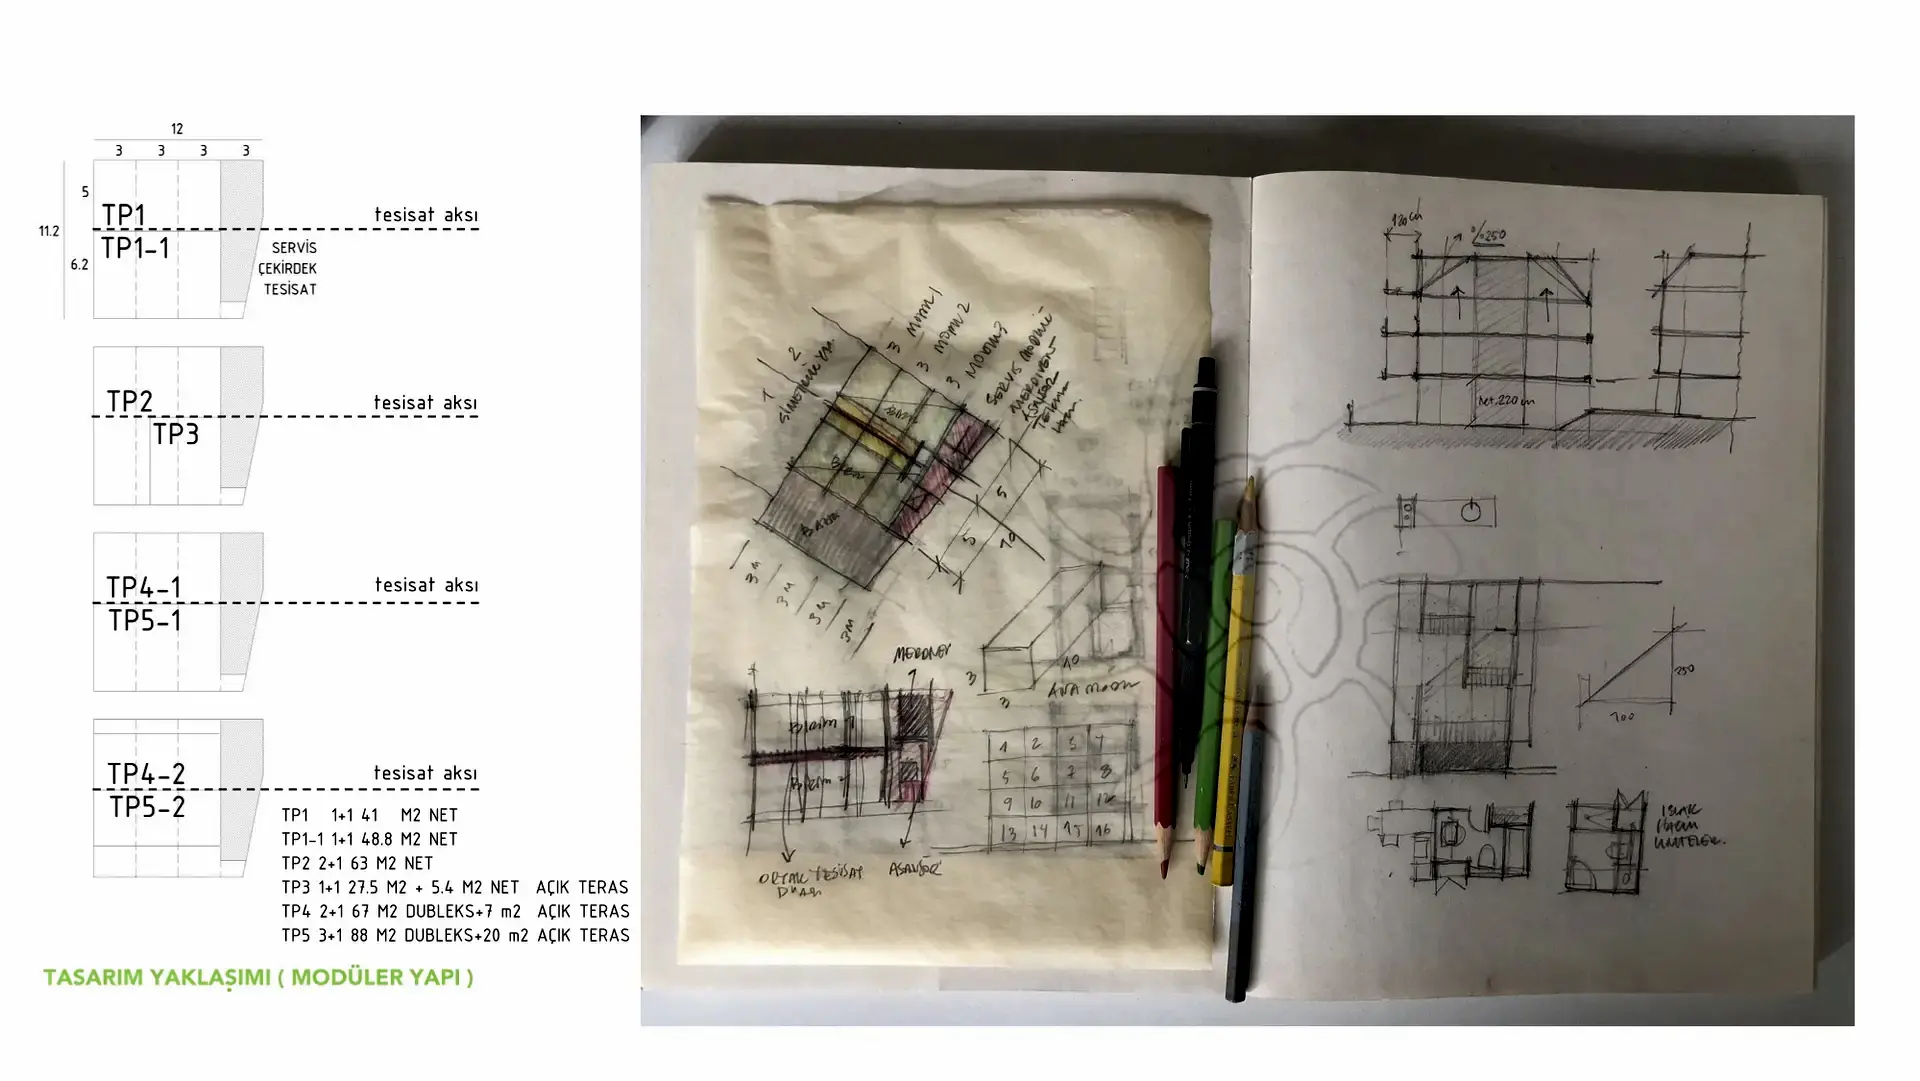 12
3 3 3 3
5
11.2
6.2
TP1
TP1-1
tesisat aksı
SERVİS
ÇEKİRDEK
TESİSAT
TP2
TP3
tesisat aksı
TP4-1
TP5-1
tesisat aksı
TP4-2
TP5-2
tesisat aksı
TP1 1+1 41 M2 NET
TP1-1 1+1 48.8 M2 NET
TP2 2+1 63 M2 NET
TP3 1+1 27.5 M2 + 5.4 M2 NET AÇIK TERAS
TP4 2+1 67 M2 DUBLEKS+7 m2 AÇIK TERAS
TP5 3+1 88 M2 DUBLEKS+20 m2 AÇIK TERAS
TASARIM YAKLAŞIMI ( MODÜLER YAPI )
3 MODÜL 1
3 MODÜL 2
3 MODÜL 3
SERVİS MODÜLÜ
MERDİVEN
ASANSÖR
5
5
10
3M
3M
3M
3M
3
3
10
ANA MODÜL
BİRİM 1
ORTAK TESİSAT
ASANSÖR
1 2 3 4
5 6 7 8
9 10 11 12
13 14 15 16
120 cm
250
net.220 cm
250
100
ISLAK
HACİM
ÜNİTELER.